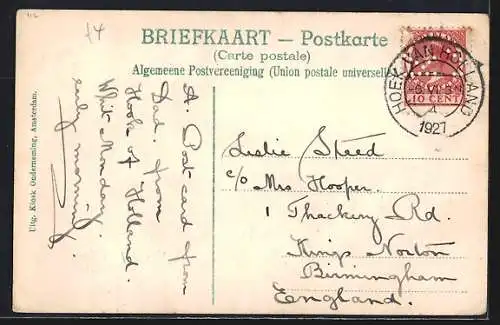 112
£4
BRIEFKAART — Postkarte
(Carte postale)
Algemeene Postvereeniging (Union postale universelle)
HOEK VAN HOLLAND
1927
10 CENT
A. Post card from
Dad. from
Hook of Holland.
Whit Monday.
early morning.
Leslie Speed
c/o Mrs Hooper.
1 Thackery Rd.
Kings Norton
Birmingham
England.
Uitg. Kiosk Onderneming, Amsterdam.